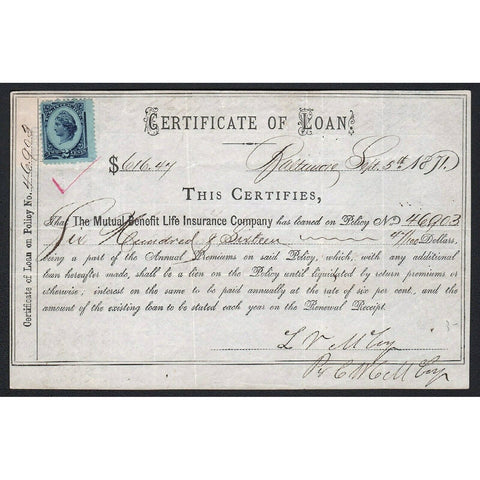 Certificate of Loan on Policy No. 46903
CERTIFICATE OF LOAN.
$616.47 Baltimore, Sept. 5th 1881
THIS CERTIFIES,
That The Mutual Benefit Life Insurance Company has loaned on Policy No 46903
Six Hundred & Sixteen 47/100 Dollars,
being a part of the Annual Premiums on said Policy, which, with any additional
loan hereafter made, shall be a lien on the Policy until liquidated by return premiums or
otherwise; interest on the same to be paid annually at the rate of six per cent., and the
amount of the existing loan to be stated each year on the Renewal Receipt.
L V McCoy